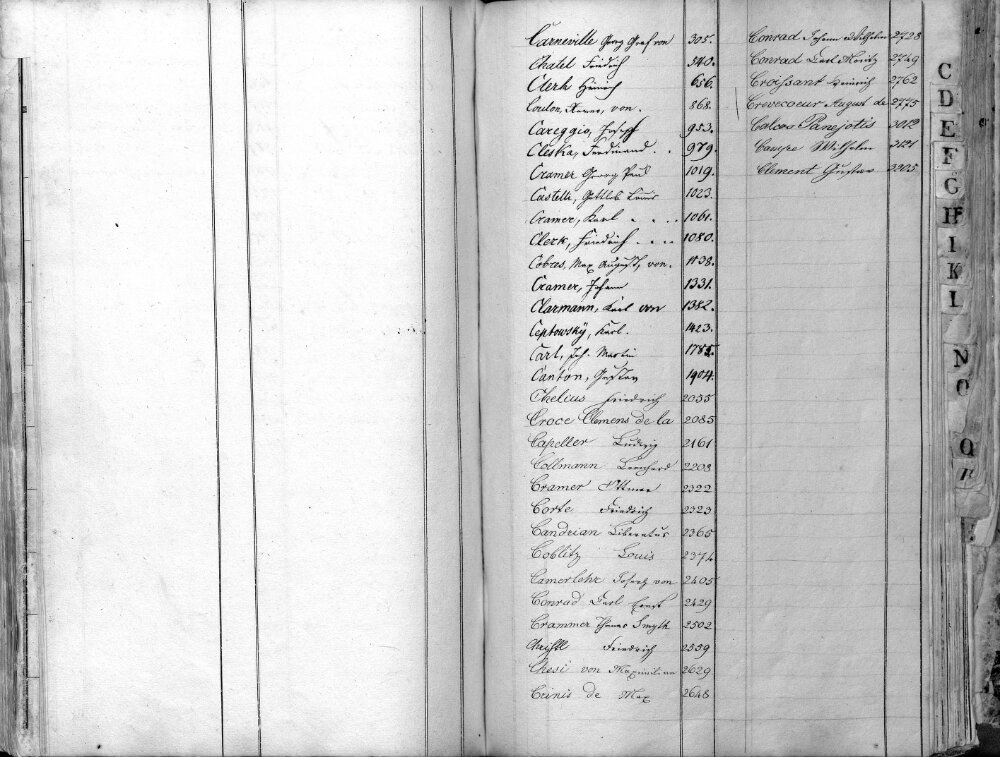 Carneville Georg Graf von 305.
Chalet Friedrich 540.
Clerk Heinrich 656.
Coulon, von. 868.
Careggio, Joseph 953.
Cleska, Ferdinand. . 979.
Cramer Georg Paul 1019.
Castelli, Gottlob Louis 1023.
Cramer, Karl . . . . 1061.
Clerk, Friedrich . . . 1080.
Cobres, Max August, von. 1138.
Cramer, Johann 1331.
Clarmann, Karl von 1382.
Ceptowsky, Karl. 1423.
Carl, Joh. Martin 1785.
Canton, Gustav 1904.
Chelius Friedrich 2035
Croce Clemens de la 2085
Capeller Ludwig 2161
Collmann Leonhard 2208
Cramer 2322
Corte Friedrich 2323
Candrian Liberatus 2365
Coblitz Louis 2374
Camerlohr Joseph von 2405
Conrad Carl Ernst 2429
Crammer Thomas Smyth 2502
Friedrich 2559
Chesi von Maximilian 2629
Crinis de Max 2648
Conrad Johann Wilhelm 2728
Conrad Carl Moritz 2749
Croissant Heinrich 2762
Crevecoeur August de 2775
Calcos Panejotis 3012
Campe Wilhelm 3121
Clement Gustav 3205
C
D
E
F
G
H
I
K
L
N
O
Q
R